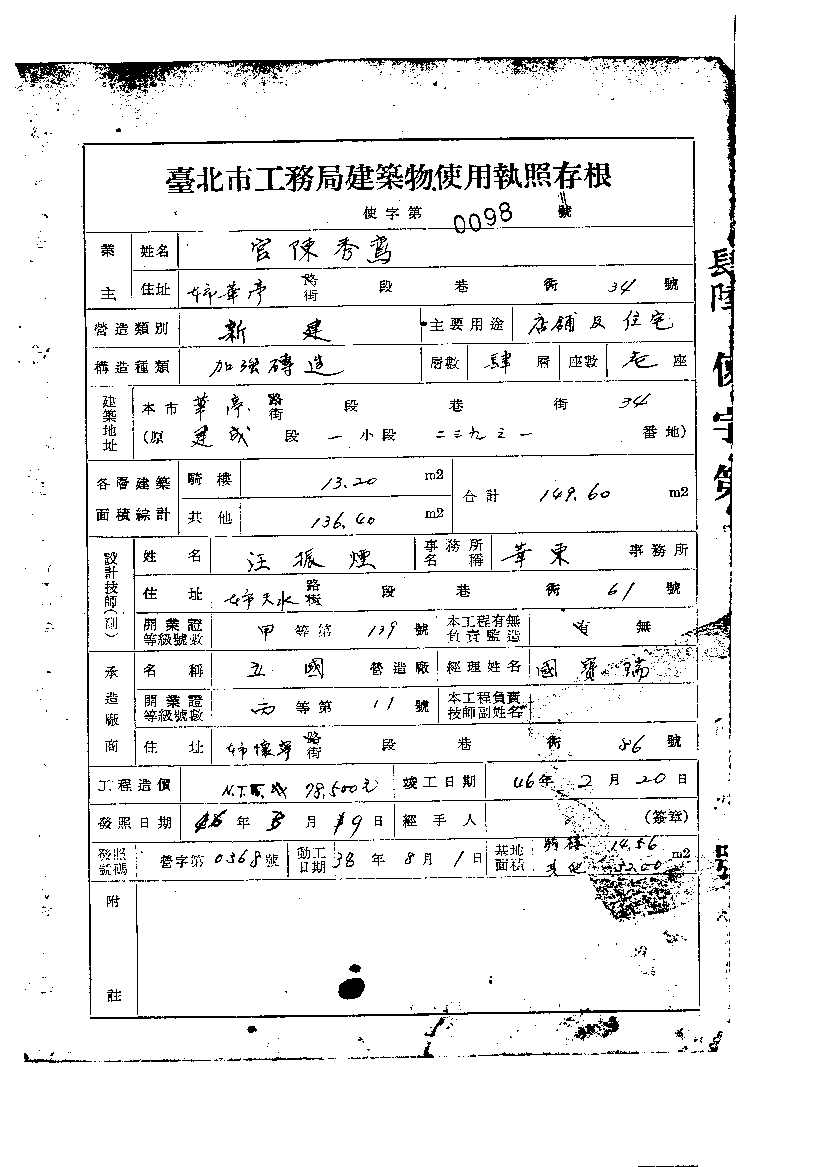 臺北市工務局建築物使用執照存根
使字第 0098 號
業主 姓名 官陳秀鸞
住址 華亭 路街 段 巷 衖 34 號
營造類別 新建 主要用途 店舖及住宅
構造種類 加强磚造 層數 肆 層 座數 壱 座
建築地址 本市 華亭 路街 段 巷 衖 34
(原 建成 段 一 小段 二三九之一 番地)
各層建築面積綜計 騎樓 13.20 m2 合計 149.60 m2
其他 136.40 m2
設計技師(副) 姓名 汪振煙 事務所名稱 華東 事務所
住址 天水 路街 段 巷 衖 61 號
開業證等級號数 甲 等第 139 號 本工程有無負責監造 有 無
承造廠商 名稱 五國 營造廠 經理姓名 國寶瑞
開業證等級號數 丙 等第 11 號 本工程負責技師副姓名
住址 懷寧 路街 段 巷 衖 86 號
工程造價 N.T. 98,500元 竣工日期 46年 2月 20日
發照日期 46年 月 19日 經手人 (簽章)
發照號碼 營字第0368號 動工日期 38年 8月 1日 基地面積 騎樓 14.56 其他 m2
附註
肆陸 使字第 號